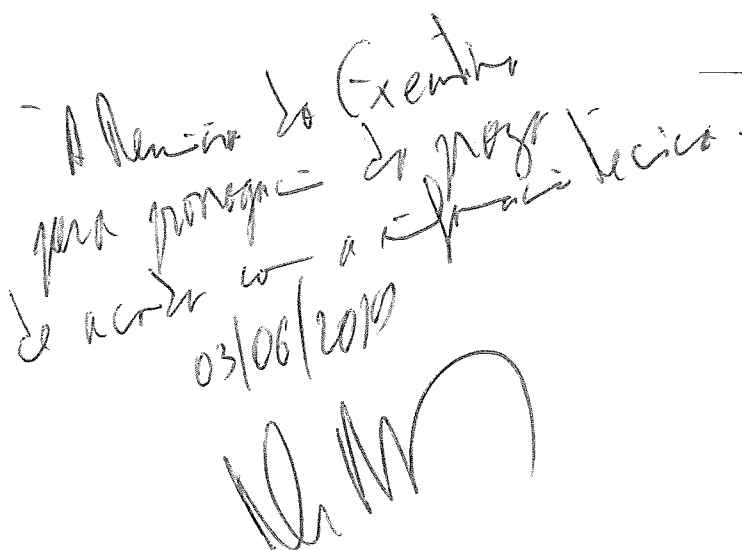 - À Reunião do Executivo
para prorrogação do prazo
de acordo com a informação técnica.
03/06/2019